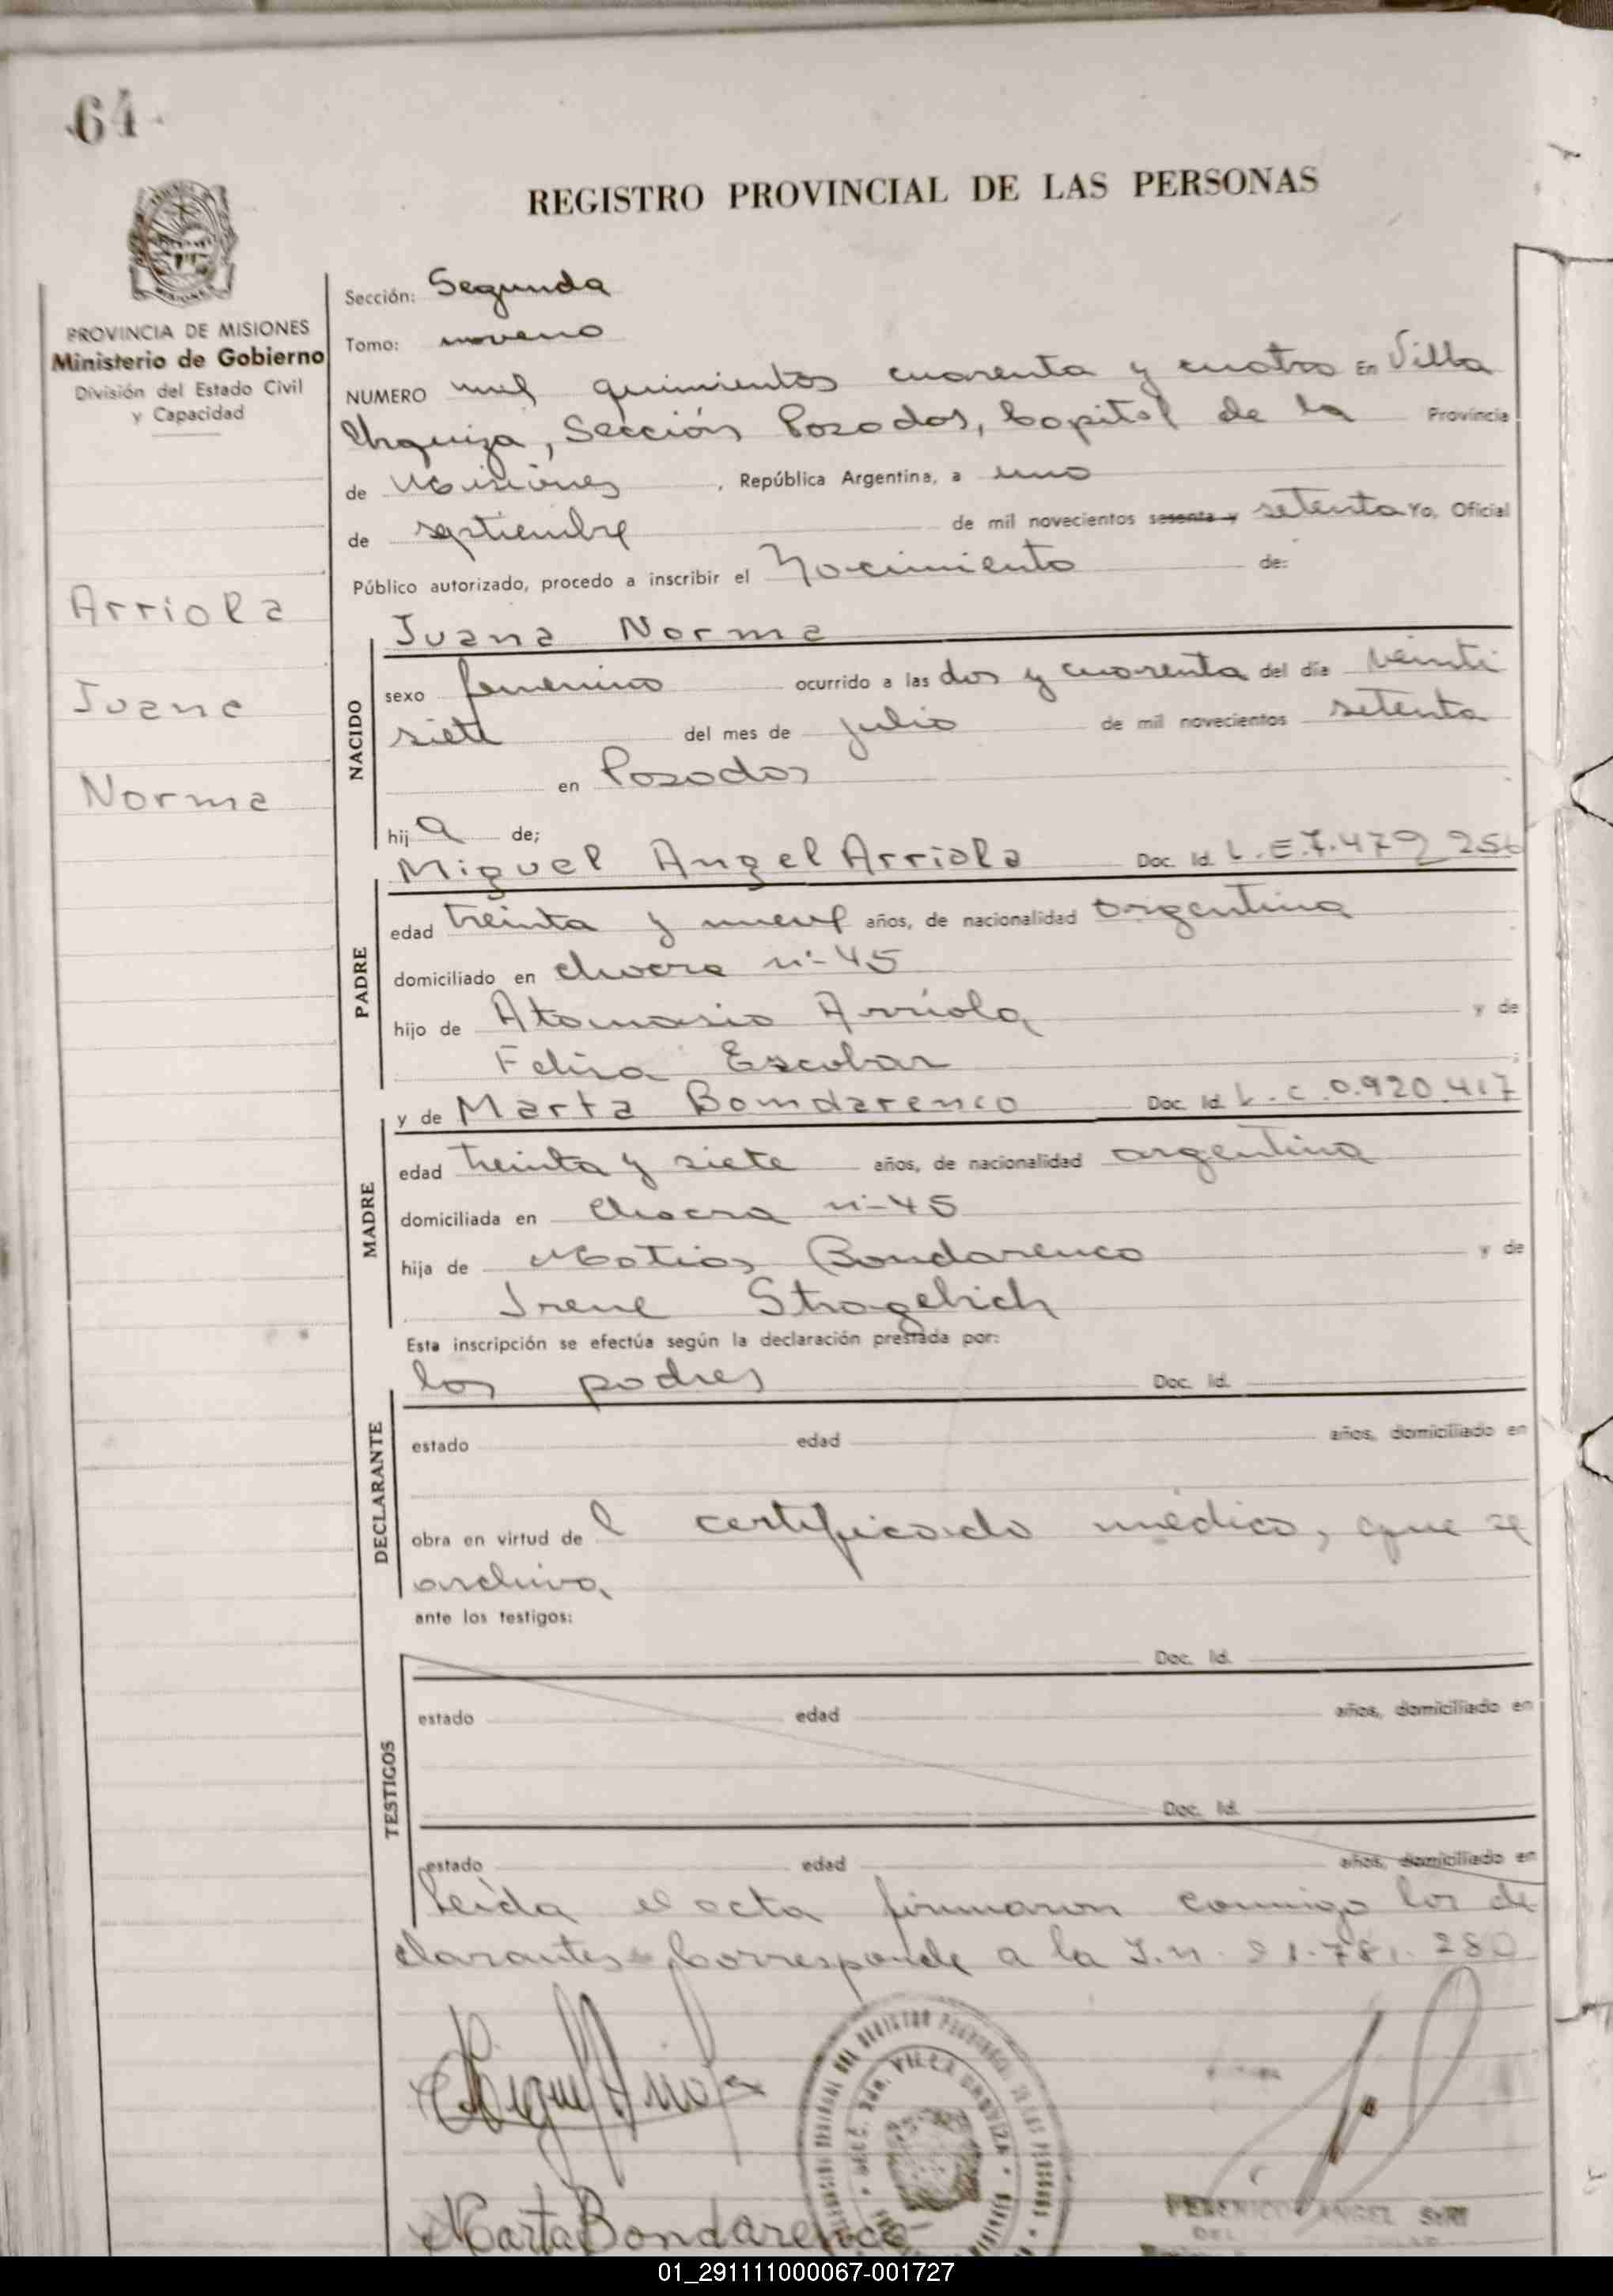 64
REGISTRO PROVINCIAL DE LAS PERSONAS
PROVINCIA DE MISIONES
Ministerio de Gobierno
División del Estado Civil
y Capacidad
Arriola
Juana
Norma
Sección: Segunda
Tomo: noveno
NUMERO mil quinientos cuarenta y cuatro En Villa
Urquiza, Sección Posadas, Capital de la Provincia
de Misiones, República Argentina, a uno
de septiembre de mil novecientos sesenta y setenta Yo, Oficial
Público autorizado, procedo a inscribir el Nacimiento de:
Juana Norma
NACIDO
sexo femenino ocurrido a las dos y cuarenta del día veinti
siete del mes de julio de mil novecientos setenta
en Posadas
hija de;
Miguel Angel Arriola Doc. Id. L.E.7.479 256
PADRE
edad treinta y nueve años, de nacionalidad argentina
domiciliado en chacra nº 45
hijo de Atanasio Arriola y de
Felisa Escobar
y de Marta Bomdarenco Doc. Id. L.C.0.920.417
MADRE
edad treinta y siete años, de nacionalidad argentina
domiciliada en chacra nº 45
hija de Matias Bondarenco y de
Irene Strogelich
Esta inscripción se efectúa según la declaración prestada por:
los padres Doc. Id.
DECLARANTE
estado edad años, domiciliado en
obra en virtud del certificado médico, que se
archiva
ante los testigos:
Doc. Id.
TESTIGOS
estado edad años, domiciliado en
Doc. Id.
estado edad años, domiciliado en
Leída el acta firmaron conmigo los de
clarantes Corresponde a la I.n. 21.781.280
Miguel Arriola
Marta Bondarenco
VILLA URQUIZA
ANGEL
01_291111000067-001727